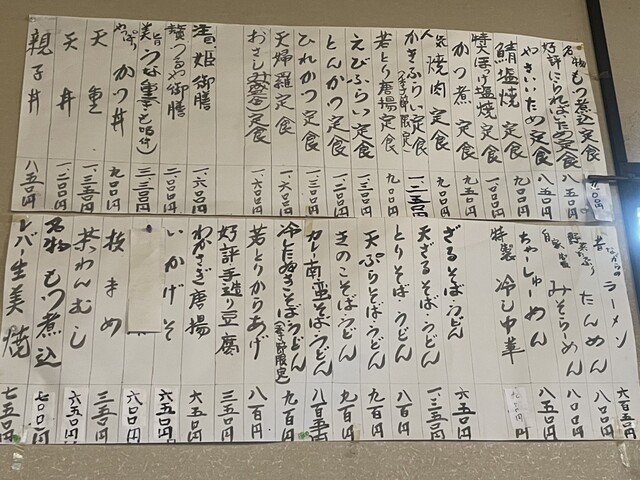 名物 もつ煮込定食 九〇〇円
好評 にられまため定食 八五〇円
やさいいため定食 八五〇円
鯖塩焼定食 九〇〇円
特大 ほっけ塩焼定食 一、〇〇〇円
かつ煮定食 九五〇円
人気 焼肉定食 九五〇円
かきふらい定食（冬季限定） 一、二五〇円
若とり唐揚定食 九〇〇円
えびふらい定食 一、二〇〇円
とんかつ定食 一、二〇〇円
ひれかつ定食 一、三〇〇円
天婦羅定食 一、六〇〇円
おさしみ盛合定食 一、六〇〇円
清姫御膳 一、六〇〇円
つるや御膳 二、〇〇〇円
美旨 うな重（きも吸付） 三、三〇〇円
やっぱり かつ丼 九〇〇円
天重 一、三五〇円
天丼 一、二〇〇円
親子丼 八五〇円
昔ながらの ラーメン 六百五〇円
野菜たっぷり たんめん 八〇〇円
自家製 みそらめん 八〇〇円
ちゃしゅーめん 八五〇円
特製 冷し中華
ざるそばうどん 六五〇円
天ざるそばうどん 一、二五〇円
とりそばうどん 八百円
天ぷらそばうどん 九百円
きのこそばうどん 九百円
カレー南蛮そばうどん 八百五十円
冷したぬきそばうどん（季節限定） 九百円
若とりからあげ 八百円
好評 手造り豆腐 三五〇円
わかさぎ唐揚 六五〇円
いかげそ 六五〇円
六〇〇円
枝まめ 三五〇円
茶わんむし 六五〇円
名物 もつ煮込 七〇〇円
レバー生姜焼 七五〇円